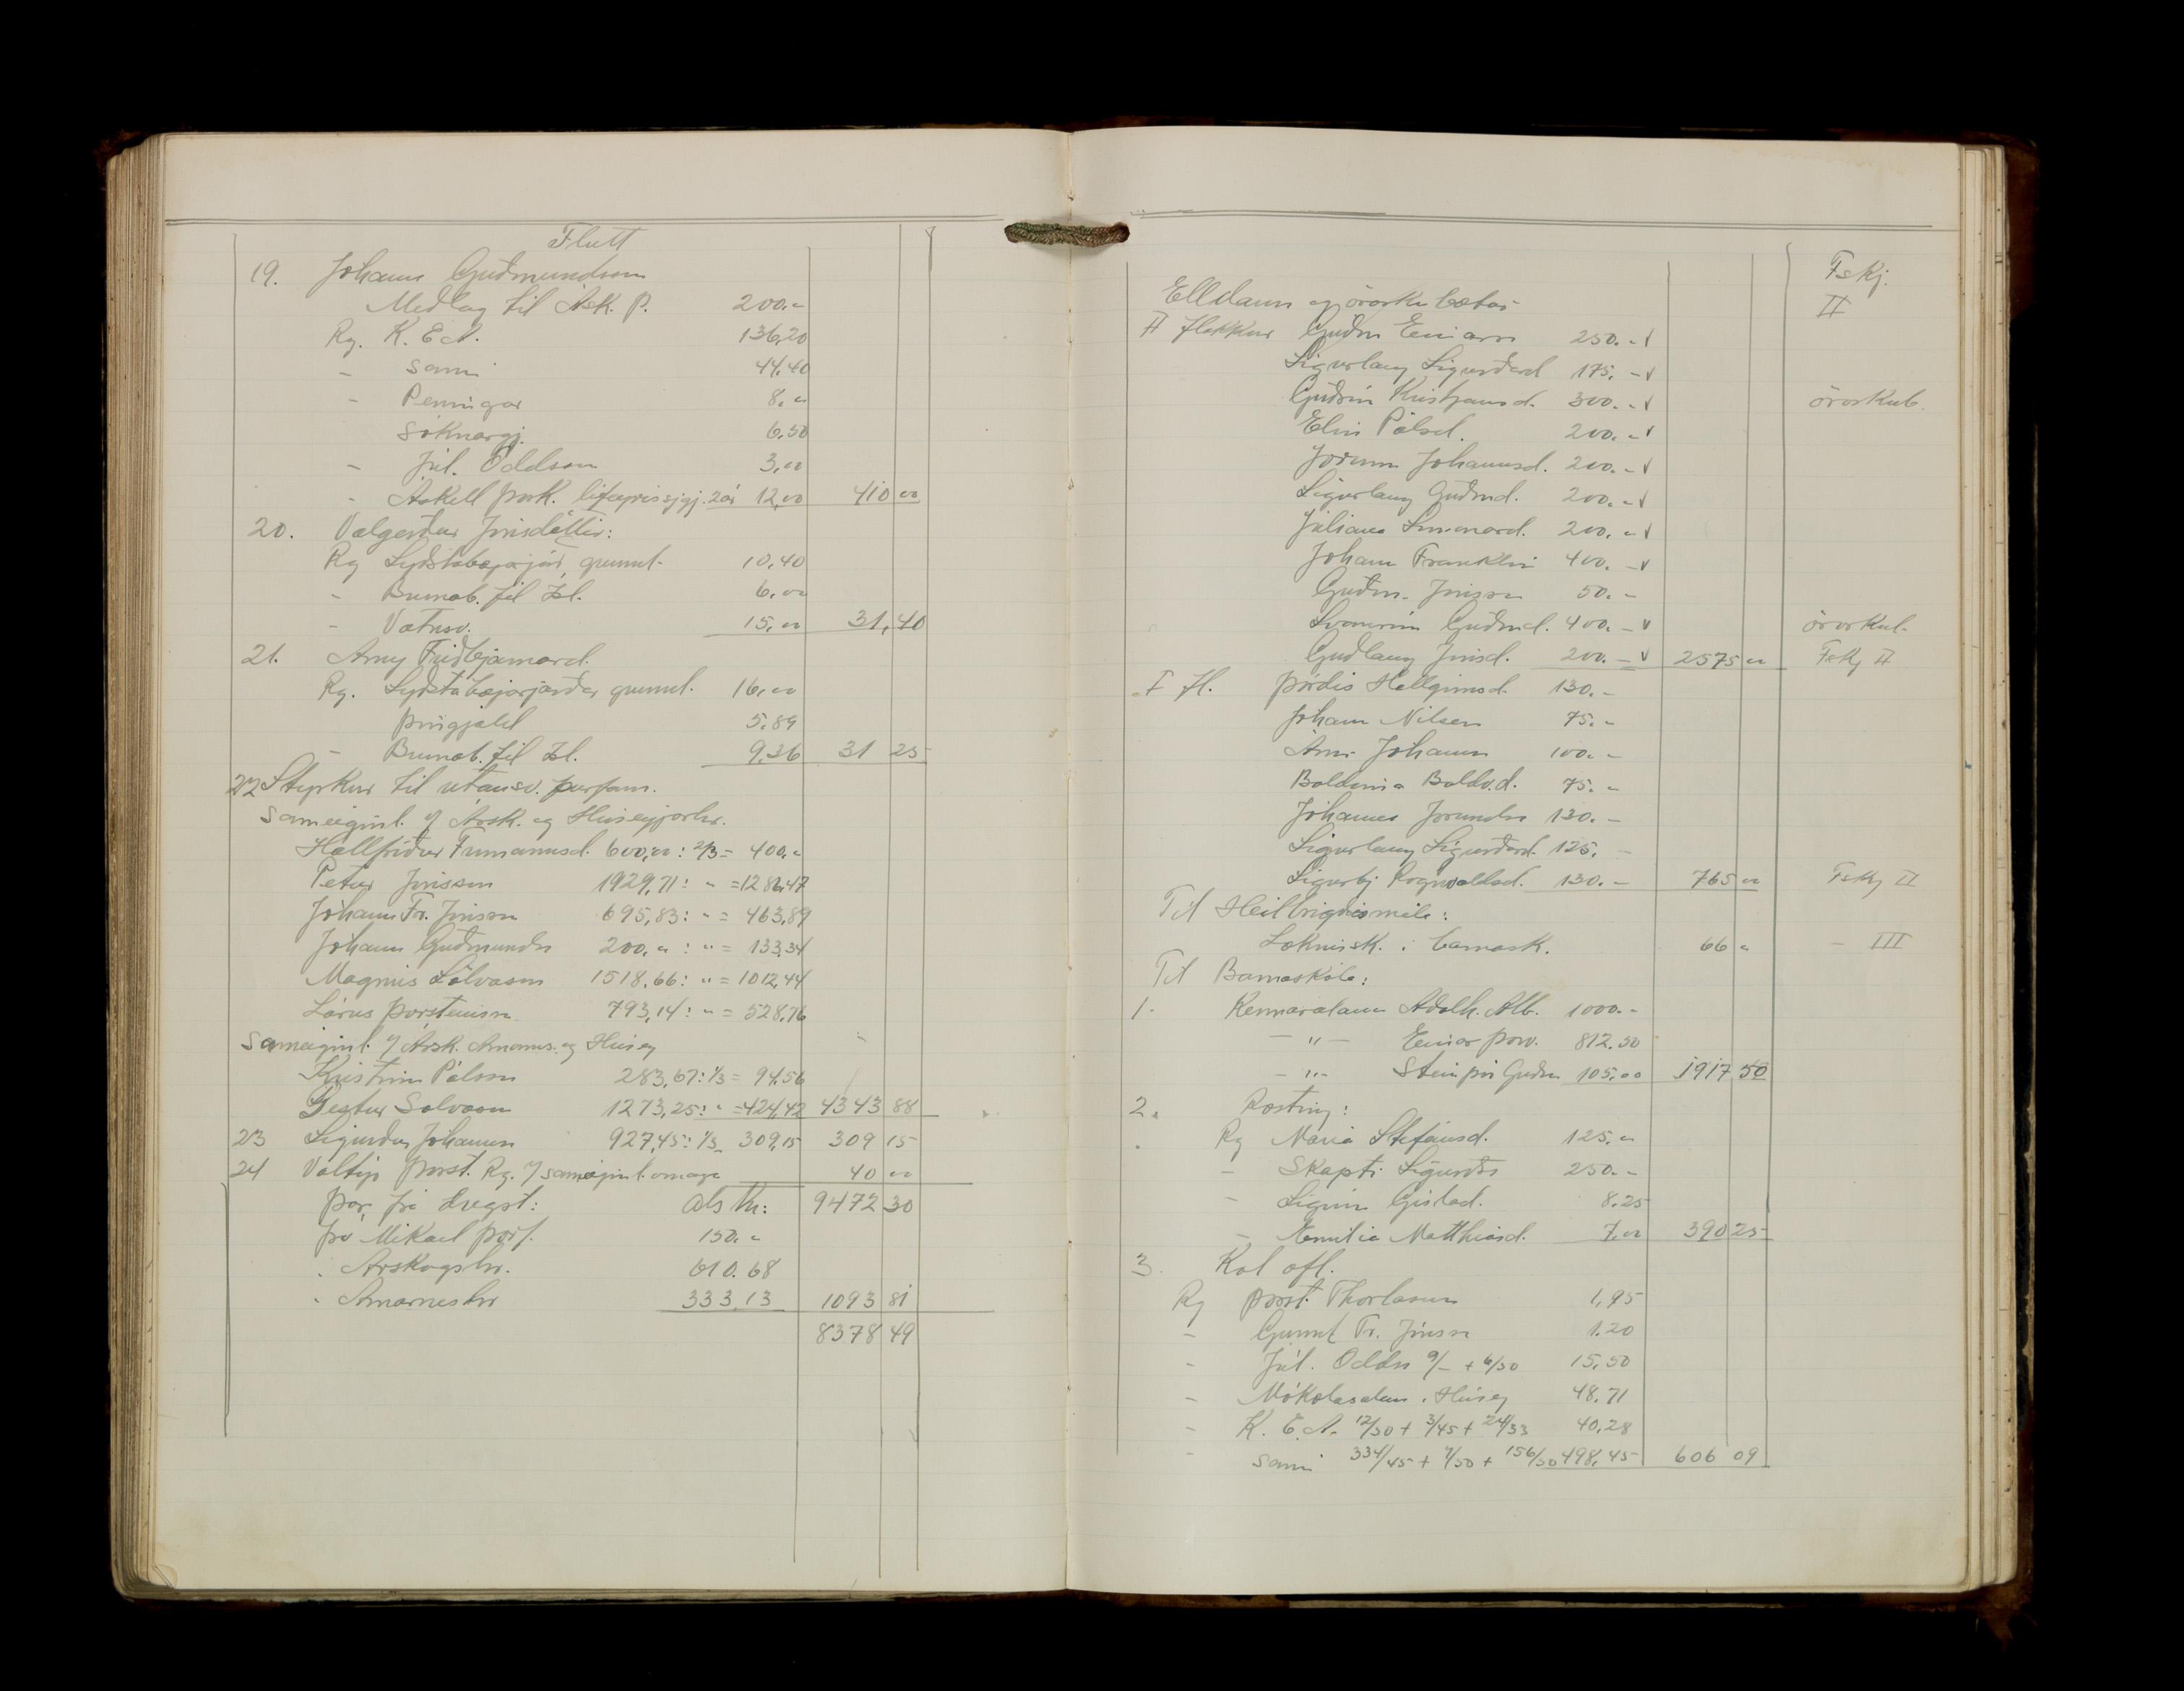 Flutt
19. Jóhann Guðmundsson
Meðlag til Ásk. Þ. 200.-
Rg. K. E. A. 136,20
- Sami 44,40
- Peningar 8.-
Sóknargj. 6,50
- Júl. Oddson 3,00
- Áskell Þork. lífeyrissjgj. 12,00 410 00
20. Valgerður Jónsdóttir:
Rg 10,40
- Brunab. fél Ísl. 6,00
- Vatnsv. 15,00 31,40
21. Arny Friðbjarnard.
Rg. 16,00
Þinggjald 5.89
- Brunab. fél Ísl. 9.36 31 25
22 Styrkur til utansv. þurfam.
Sameiginl. Ársk. og Hríseyjarhr.
Hallfríður 600,00 : 2/3 = 400.-
Petur Jónsson 1929,71 : " = 1286,47
Jóhann Fr. Jónsson 695,83 : " = 463,89
Jóhann Guðmundss 200,- : " = 133,34
Magnús Sölvason 1518,66 : " = 1012,44
Lárus Þorsteinss 793,14 : " = 528,76
Sameiginl. Ársk. Arnarns. og Hrísey
Kristinn Pálsson 283,67 : 1/3 = 94,56
Gestur Sölvason 1273,25 : " = 424,42 4343 88
23 Sigurður Johannss 927,45 : 1/3 309,15 309 15
24 Valtýr Þorst. Rg. sameiginl. omaga 40 00
Þar frá dregst: Als kr: 9472 30
frá Mikael Þorf. 150.-
" Árskogshr. 610.68
" Arnarneshr 333.13 1093 81
8378 49
Fskj.
Ellilaun og örorkubætur II
II flokkur Guðm Einarss 250.- v
Sigurlaug Sigurðard 175.- v
Guðrún Kristjansd. 300.- v örorkub.
Elín Pálsd. 200.- v
Jórunn Jóhannsd. 200.- v
Sigurlaug Guðmd. 200.- v
Júliana 200.- v
Johann Franklin 400.- v
Guðm. Jónsson 50.-
Guðmd. 400.- v örorkub.
Guðlaug Jónsd. 200.- v 2575 00 Fskj II
I fl. Þórdís Hallgrimsd. 130.-
Johann Nilsen 75.-
Árni Johannss 100.-
Baldvina Baldv.d. 75.-
Jóhannes Jörundss 130.-
Sigurlaug Sigurðard. 125.-
Sigurbj Rögnvaldsd. 130.- 765 00 Fskj II
Til Heilbrigðismála:
Læknissk. í barnask. 66 - - III
Til Barnaskóla:
1. Kennaralaun Aðalh. Alb. 1000.-
- " - Einar Þorv. 812.50
- " - Steinþór Guðm 105.00 1917 50
2. Ræsting:
Rg María Stefánsd. 125.-
- Skapti Sigurðss 250.-
- Sigrún Gíslad. 8.25
- Emilía Matthíasd. 7.00 390 25
3. Kol ofl.
Rg Þorst. Thorlasius 1,95
- Gunnl Fr. Jónsson 1.20
- Júl. Oddss 9/- + 6/50 15,50
- Mókolasalan í Hrísey 48.71
- K. E. A. 12/50 + 3/45 + 24/33 40,28
- Sami 334/45 + 7/50 + 156/50 498,45 606 09